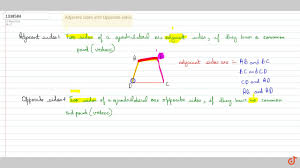 Adjacent sides with Opposite sides.
Adjacent sides: Two sides of a quadrilateral are adjacent sides, if they have a common
point (vertex)
adjacent sides are :- AB and BC
BC and CD
CD and AD
Opposite sides: Two sides of a quadrilateral are opposite sides, if they have no common
end point (vertex)
B
D
C